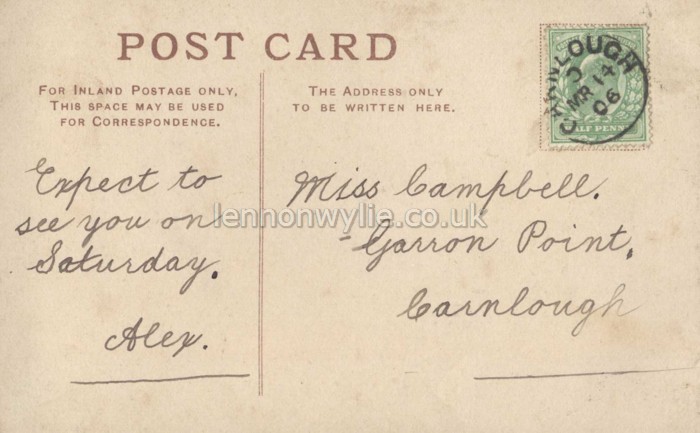 POST CARD
FOR INLAND POSTAGE ONLY,
THIS SPACE MAY BE USED
FOR CORRESPONDENCE.
THE ADDRESS ONLY
TO BE WRITTEN HERE.
CARNLOUGH
MR 14
06
HALF PENNY
Expect to
see you on
Saturday.
Alex.
Miss Campbell.
Garron Point,
Carnlough
lennonwylie.co.uk